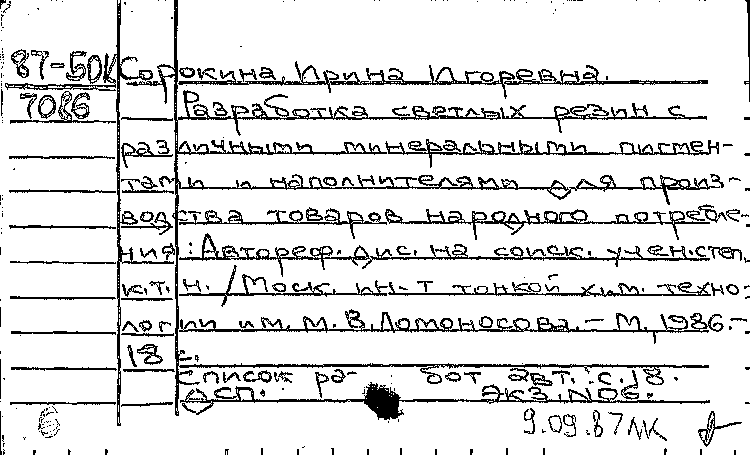 87-50К Сорокина, Ирина Игоревна.
7086 Разработка светлых резин с
различными минеральными пигмен-
тами и наполнителями для произ-
водства товаров народного потребле-
ния : Автореф. дис. на соиск. учен. степ.
к.т.н. / Моск. ин-т тонкой хим. техно-
логии им. М.В. Ломоносова. – М., 1986. –
18 с.
Список работ авт.: с. 18.
ДСП. Экз. N06.
9.09.87 ЛК